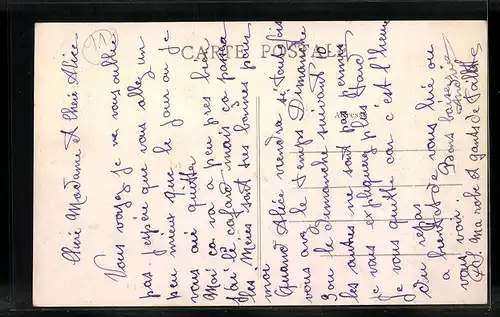 CARTE POSTALE
Chere Madame et Chere Alice
Vous voyez je ne vous oublie
pas j'espère que vous allez un
peu mieux que le jour ou je
vous ai quitté
Moi ca va a peu pres bien
j'ai le cafard mais ca passe
les Mères sont tres bonnes pour
moi
Quand Alice viendra si toutfois
vous avez le temps Dimanche
ou le dimanche suivant
les autres ne sont pas permis
je vous expliquerez plus tard
Je vous quitte car c'est l'heure
du repas
a bientot de vous lire ou
vous voir. Bons baisers
ma robe et gants de